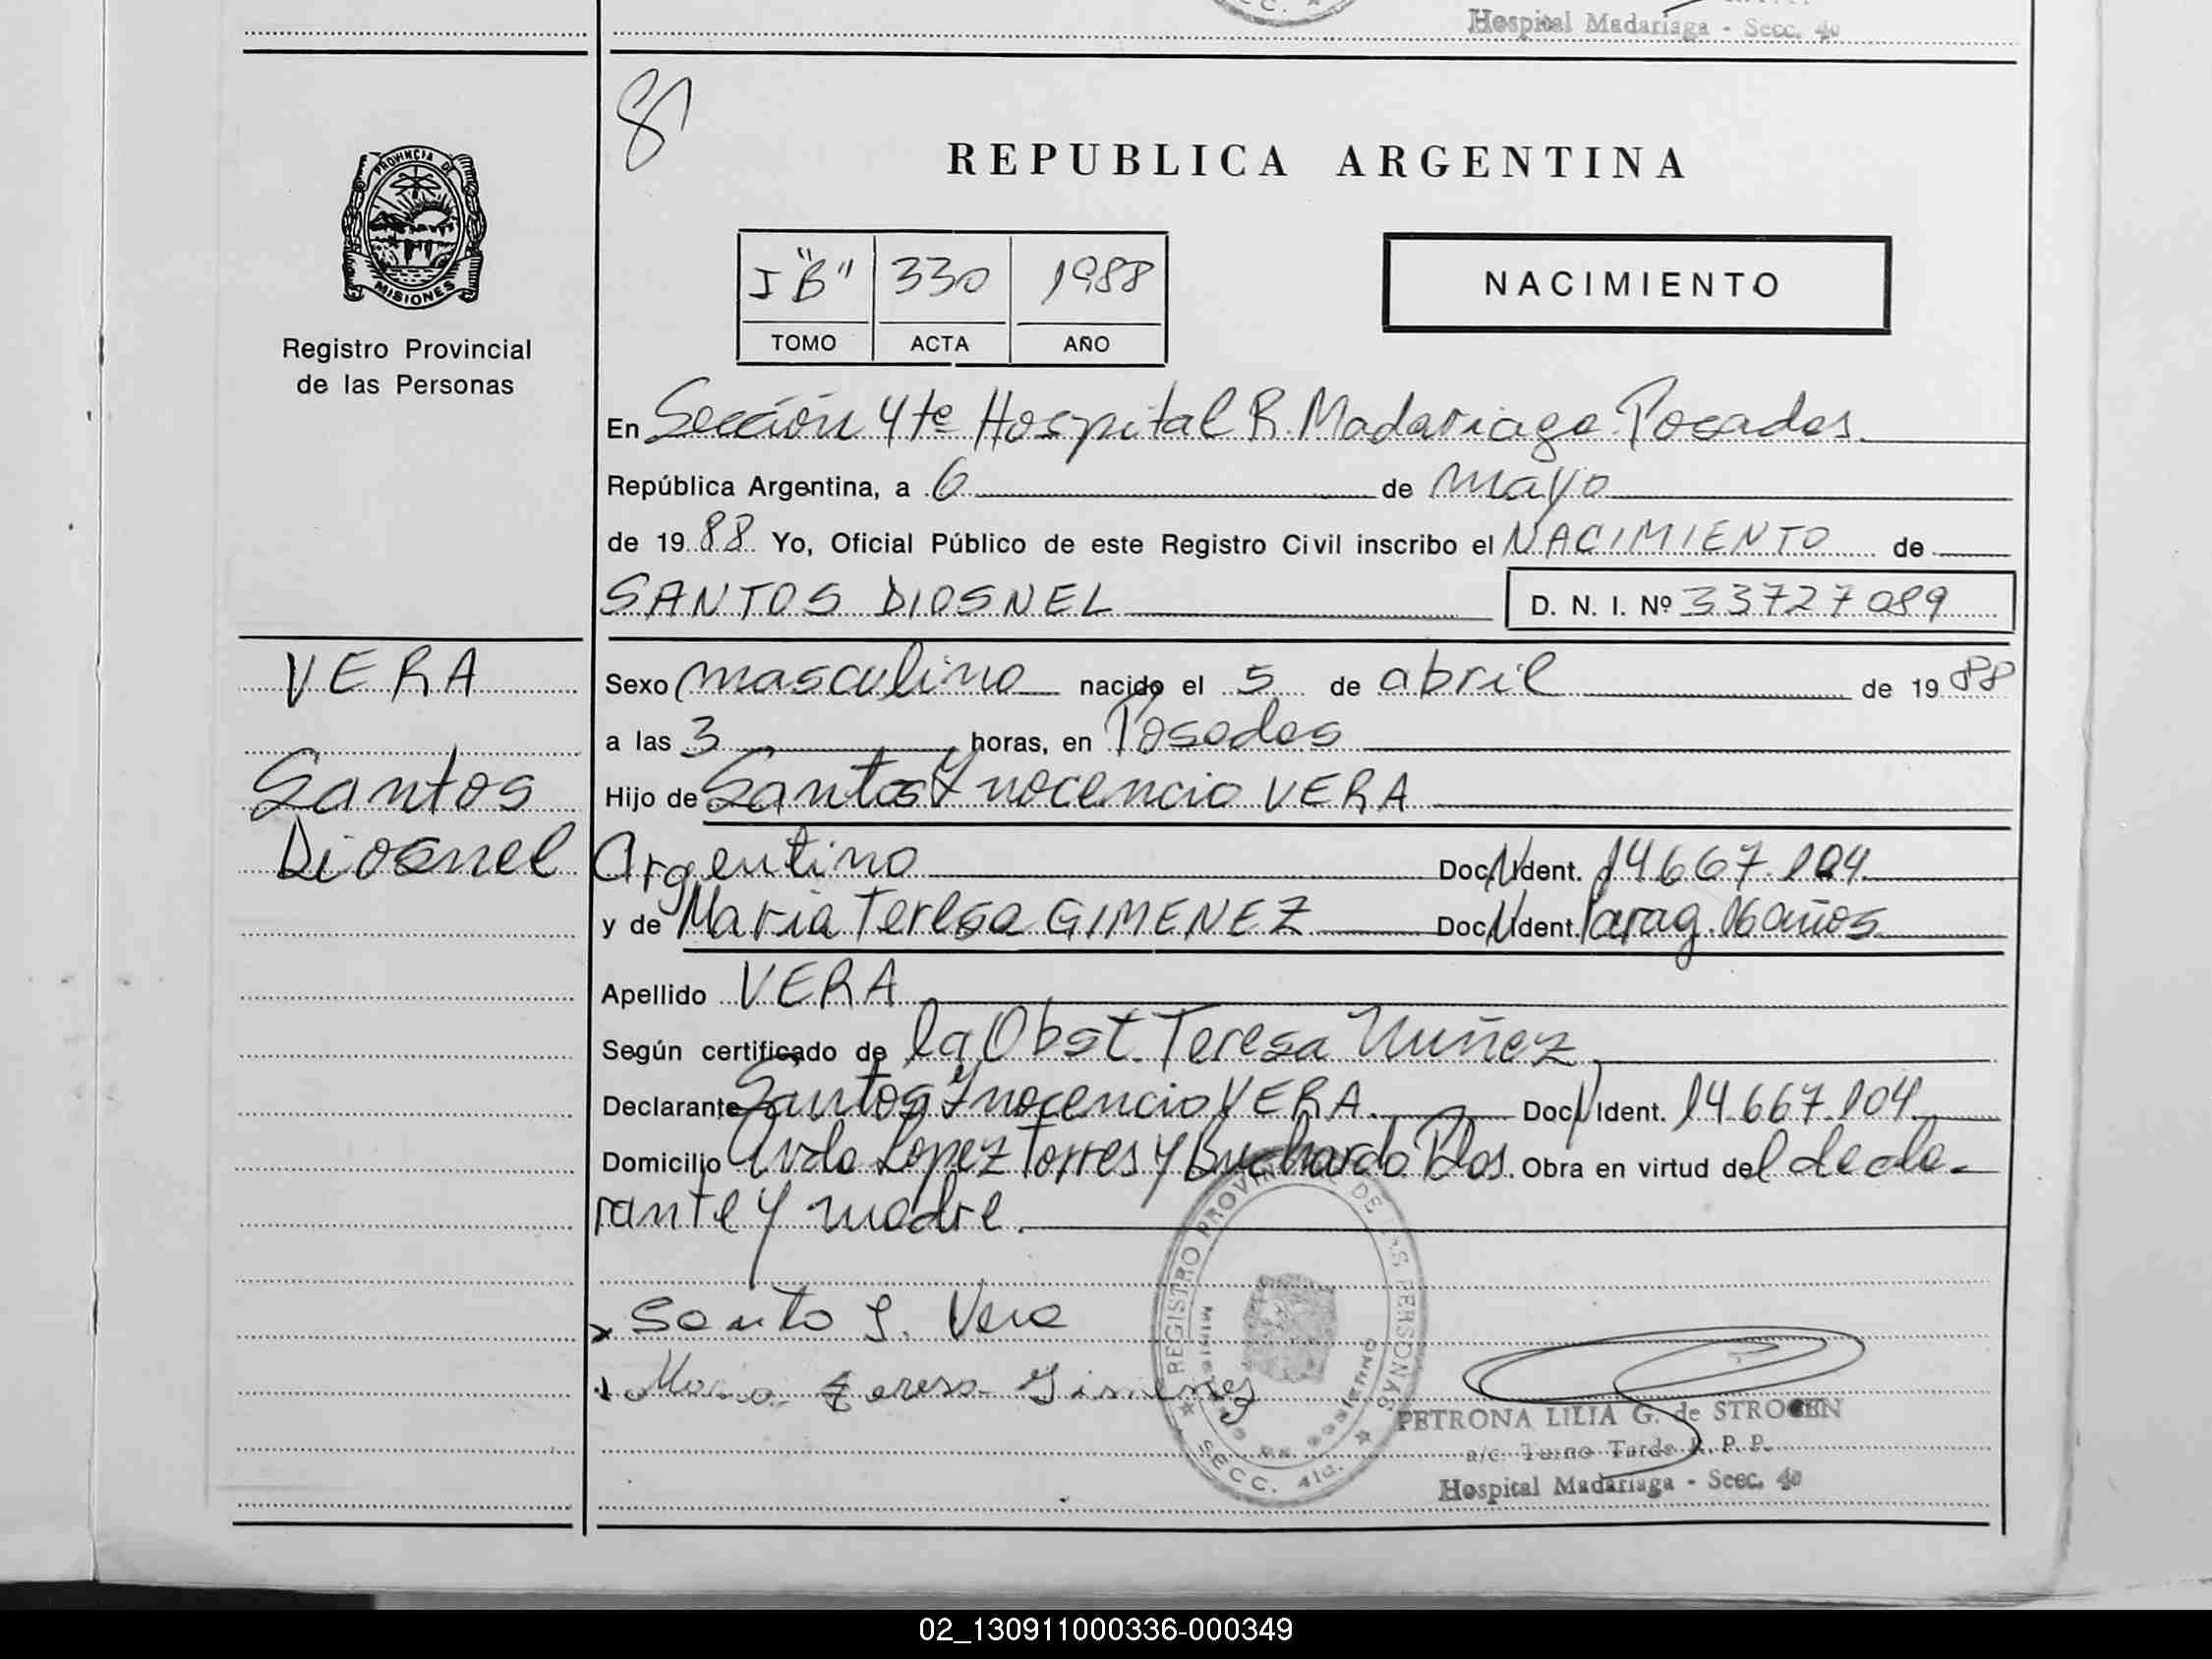 Hospital Madariaga - Secc. 4o
8
PROVINCIA DE
MISIONES
Registro Provincial
de las Personas
REPUBLICA ARGENTINA
I "B" 330 1988
TOMO ACTA AÑO
NACIMIENTO
En Sección 4te Hospital R. Madariaga Posadas.
República Argentina, a 6 de mayo
de 1988 Yo, Oficial Público de este Registro Civil inscribo el NACIMIENTO de
SANTOS DIOSNEL D. N. I. Nº 33727089
VERA
Santos
Diosnel
Sexo masculino nacido el 5 de abril de 1988
a las 3 horas, en Posadas
Hijo de Santos Ynocencio VERA
Argentino Doc. Ident. 14.667.104
y de Maria Teresa GIMENEZ Doc. Ident. Parag. 16 años
Apellido VERA
Según certificado de la Obst. Teresa Nuñez
Declarante Santos Ynocencio VERA. Doc. Ident. 14.667.104
Domicilio Avda Lopez Torres y Buchardo Pdas. Obra en virtud del decla-
rante y madre.
Santo I. Vera
Maria teresa Gimenez
REGISTRO PROVINCIAL DE LAS PERSONAS
MINISTERIO DE GOBIERNO
SECC. 4ta.
PETRONA LILIA G. de STROGEN
a/c. Turno Tarde R. P. P.
Hospital Madariaga - Secc. 4o
02_130911000336-000349